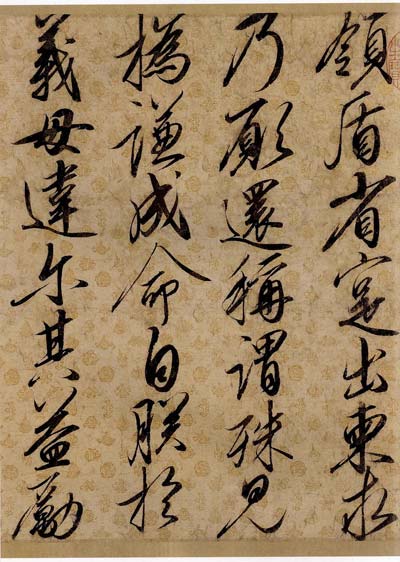 領盾省寔出柬求
乃願還稱謂殊見
撝謙成命自朕於
義毋違尔其益勵